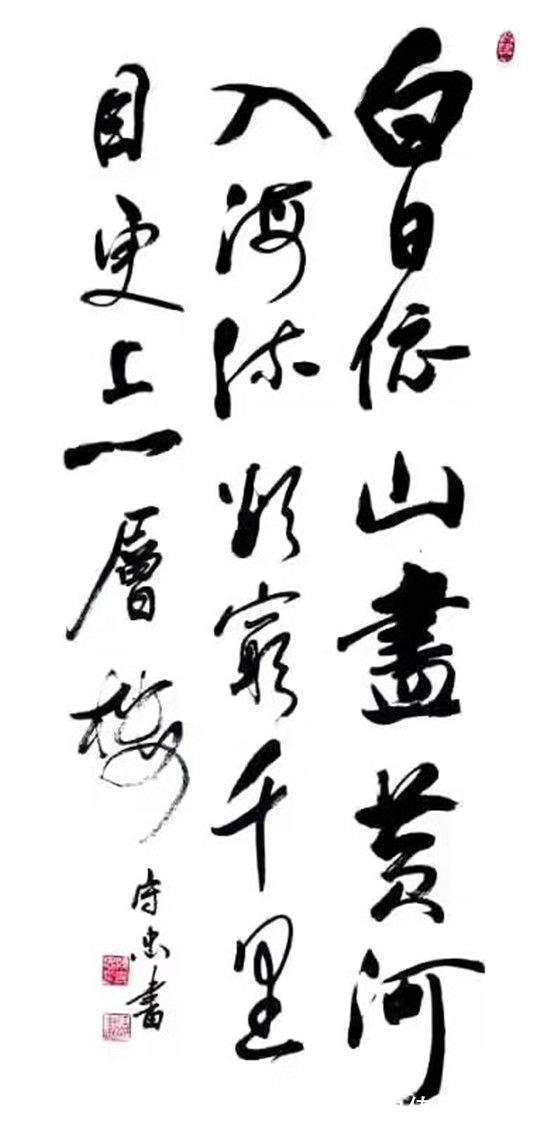 白日依山盡黃河
入海流欲窮千里
目更上一層樓
守忠書